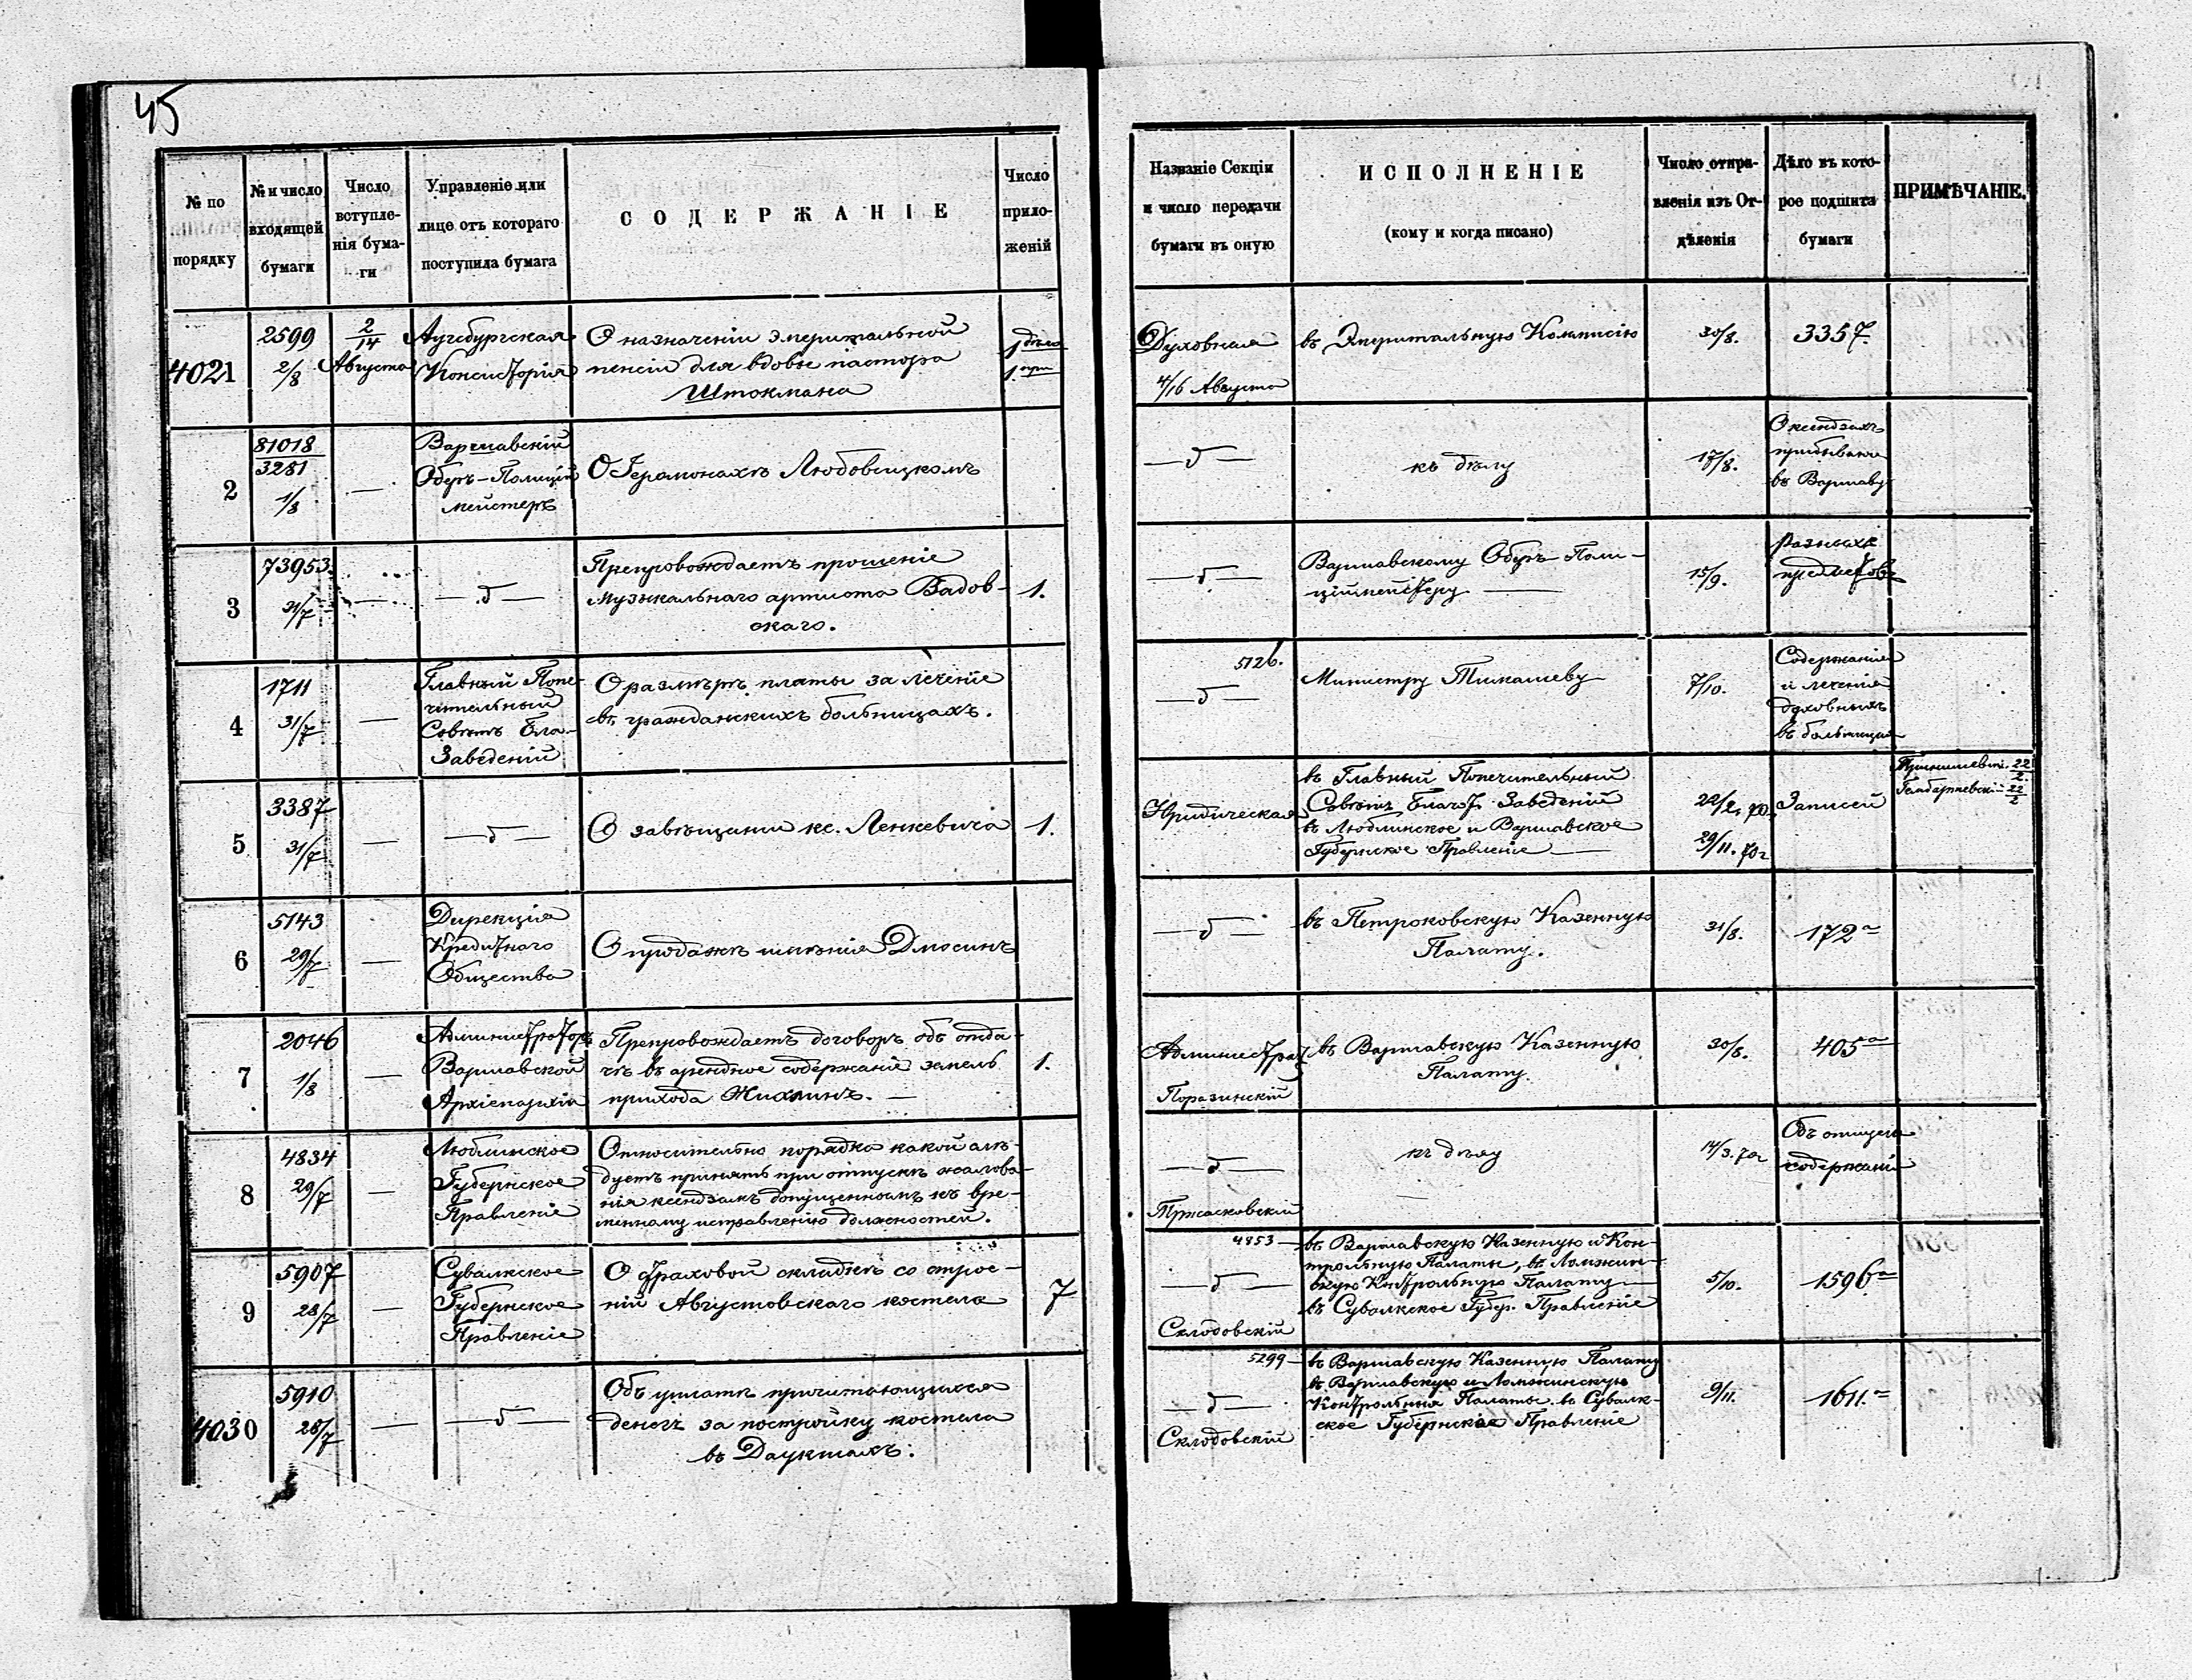 45
№ по
порядку
№ и число
входящей
бумаги
Число
вступле-
нія бума-
ги
Управленіе или
лице отъ котораго
поступила бумага
СОДЕРЖАНІЕ
Число
прило-
женій
Названіе Секціи
и число передачи
бумаги въ оную
ИСПОЛНЕНІЕ
(кому и когда писано)
Число отпра-
вленія изъ От-
дѣленія
Дѣло въ кото-
рое подшита
бумаги
ПРИМѢЧАНІЕ.
4021
2599
2/8
2/14
Августа
Аугсбургская
Консисторія
О назначеніи эмеритальной
пенсіи для вдовы пастора
Штокмана
1 дѣло
1 при
Духовная
4/16 Августа
въ Эмеритальную Коммисію
30/8.
3357
2
81018
3281
1/8
—
Варшавскій
Оберъ-Полицій
мейстеръ
О Іеромонахѣ Любовицкомъ
— д —
къ дѣлу
17/8.
О ксендзахъ
прибывш
въ Варшаву
3
73953.
31/7
—
— д —
Препровождаетъ прошеніе
музыкальнаго артиста Вадов-
скаго.
1.
— д —
Варшавскому Оберъ-Поли-
ціймейстеру —
15/9.
Разныхъ
предметовъ
4
1711
31/7
—
Главный Попе-
чительный
Совѣтъ Бла-
Заведеній
О размѣрѣ платы за леченіе
въ гражданскихъ больницахъ.
5126.
— д —
Министру Тимашеву
7/10.
Содержаніе
и леченіе
духовныхъ
въ больницахъ
5
3387
31/7
—
— д —
О завѣщаніи кс. Ленкевича
1.
Юридическая
въ Главный Попечительный
Совѣтъ Благот. Заведеній
въ Люблинское и Варшавское
Губернское Правленіе —
22/2. 70.
29/11. 70г
Записей
22/2
22/2
6
5143
29/7
—
Дирекція
Кредитнаго
Общества
О продажѣ имѣнія Дмосинъ
— д —
въ Петроковскую Казенную
Палату.
31/8.
172а
7
2046
1/8
—
Администраторъ
Варшавской
Архіепархіи
Препровождаетъ договоръ объ отда-
чѣ въ арендное содержаніе земель
прихода Жихлинъ. —
1.
Администрат
Поразинскій
въ Варшавскую Казенную
Палату.
30/8.
405а
8
4834
29/7
—
Люблинское
Губернское
Правленіе
Относительно порядка какой слѣ-
дуетъ принять при отпускѣ жалова-
нія ксендзамъ допущеннымъ къ вре-
менному исправленію должностей.
— д —
Тржасковскій
къ дѣлу
14/3. 70г
Объ отпускѣ
содержанія
9
5907
28/7
—
Сувалкское
Губернское
Правленіе
О страховой складкѣ со строе-
ній Августовскаго костела
7
4853 —
— д —
Склодовскій
въ Варшавскую Казенную и Кон-
трольную Палаты, въ Ломжин-
скую Контрольную Палату —
въ Сувалкское Губер. Правленіе
5/10.
1596а
4030
5910
28/7
—
— д —
Объ уплатѣ причитающихся
денегъ за постройку костела
въ Даукшахъ.
5299 —
— д —
Склодовскій
въ Варшавскую Казенную Палату
въ Варшавскую и Ломжинскую
Контрольныя Палаты. въ Сувалк-
ское Губернское Правленіе
9/11.
1611.а